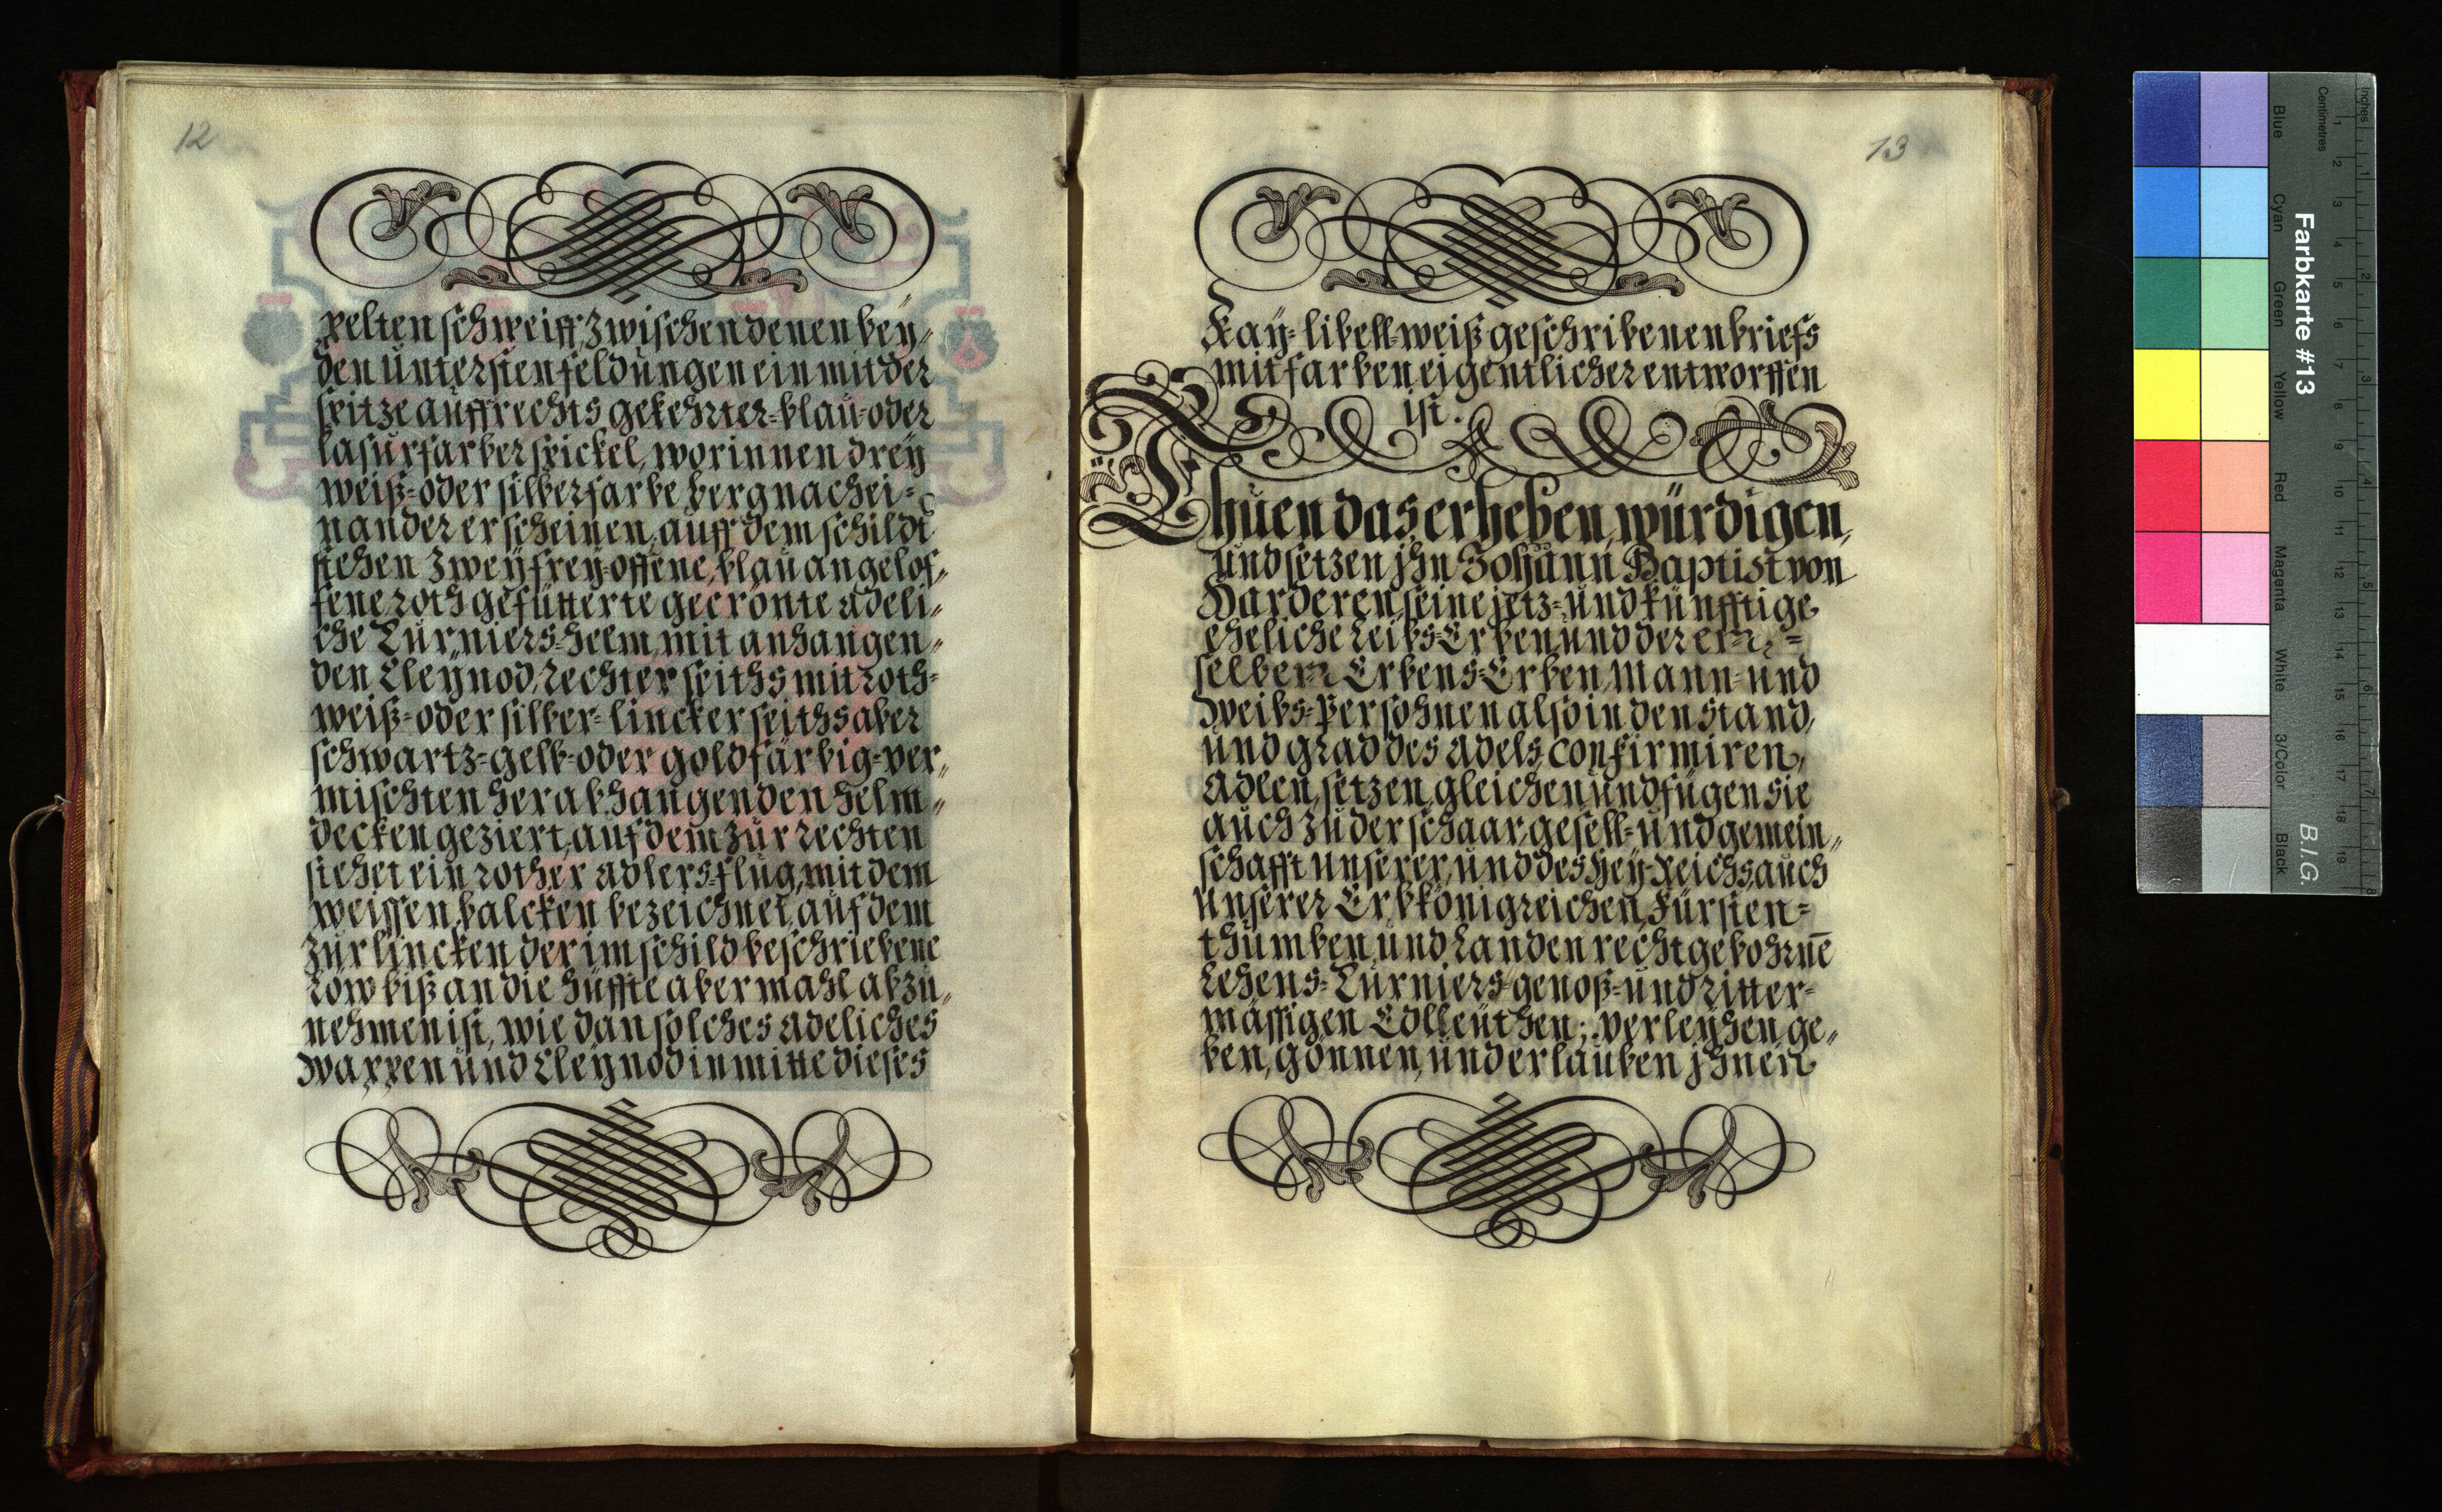 12
pelten schweiff, zwischen denen bey„
den unteristen feldungen ein mit der
spitze auffrechts gekehrter-blau-oder
lasurfarber spickel, worinnen drey
weiß-oder silberfarbe berg nachei=
nander erscheinen, auff dem schildt
stehen zwey frey-offene, blau angelof„
fene roth gefütterte gecrönte adeli„
che Turniers-helm, mit anhangen„
den Cleynod, rechter seiths mit roth-
weiß-oder silber-lincker seiths aber
schwartz-gelb-oder goldfärbig-ver„
mischten herabhangenden helm„
decken geziert, auf dem zur rechten
stehet ein rother adlers-flug, mit dem
weissen balcken bezeichnet, auf dem
zur lincken der im schild beschriebene
Löw biß an die hüffte abermahl abzu„
nehmen ist, wie dan solches adeliches
wappen und Cleynod in mitte dieses
13
Kay-libell-weiß geschribenen briefs
mit farben eigentlicher entworffen
ist.
Thuen das, erheben, würdigen,
und setzen jhn Johann Baptist von
Harderen, seine jetz-und künfftige
eheliche Leibs-Erben, und deren=
selben Erbens-Erben, Mann-und
Weibs-Persohnen also in den stand,
und grad des adels, confirmiren,
adlen, setzen, gleichen und fügen sie
auch zu der schaar, gesell-und gemein„
schafft unserer, und des Heÿ-Reichs, auch
unserer Erbkönigreichen, Fürsten=
thumben, und Landen recht gebohrnē
Lehens-Turniers-genoß-und ritter-
mässigen Edlleuthen; verleyhen, ge„
ben, gönnen, und erlauben jhnen
Inches
Centimetres
1 2 3 4 5 6 7 8 9 10 11 12 13 14 15 16 17 18 19
Blue
Cyan
Green
Yellow
Red
Magenta
White
3/Color
Black
Farbkarte #13
B.I.G.